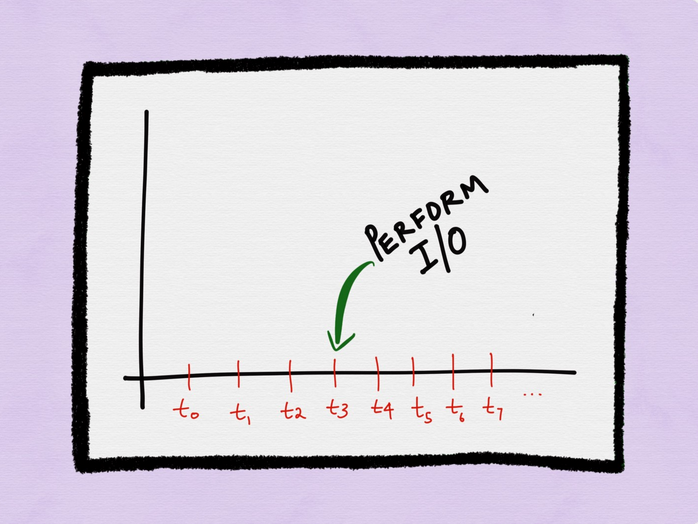 PERFORM
I/O
t0 t1 t2 t3 t4 t5 t6 t7 ...